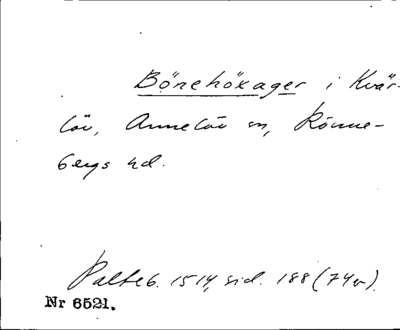 Bönehöxager i Kvär-
löv, Annelöv sn, Rönne-
bergs hd.
Palteb. 1514, sid. 188 (74v).
Nr 6521.